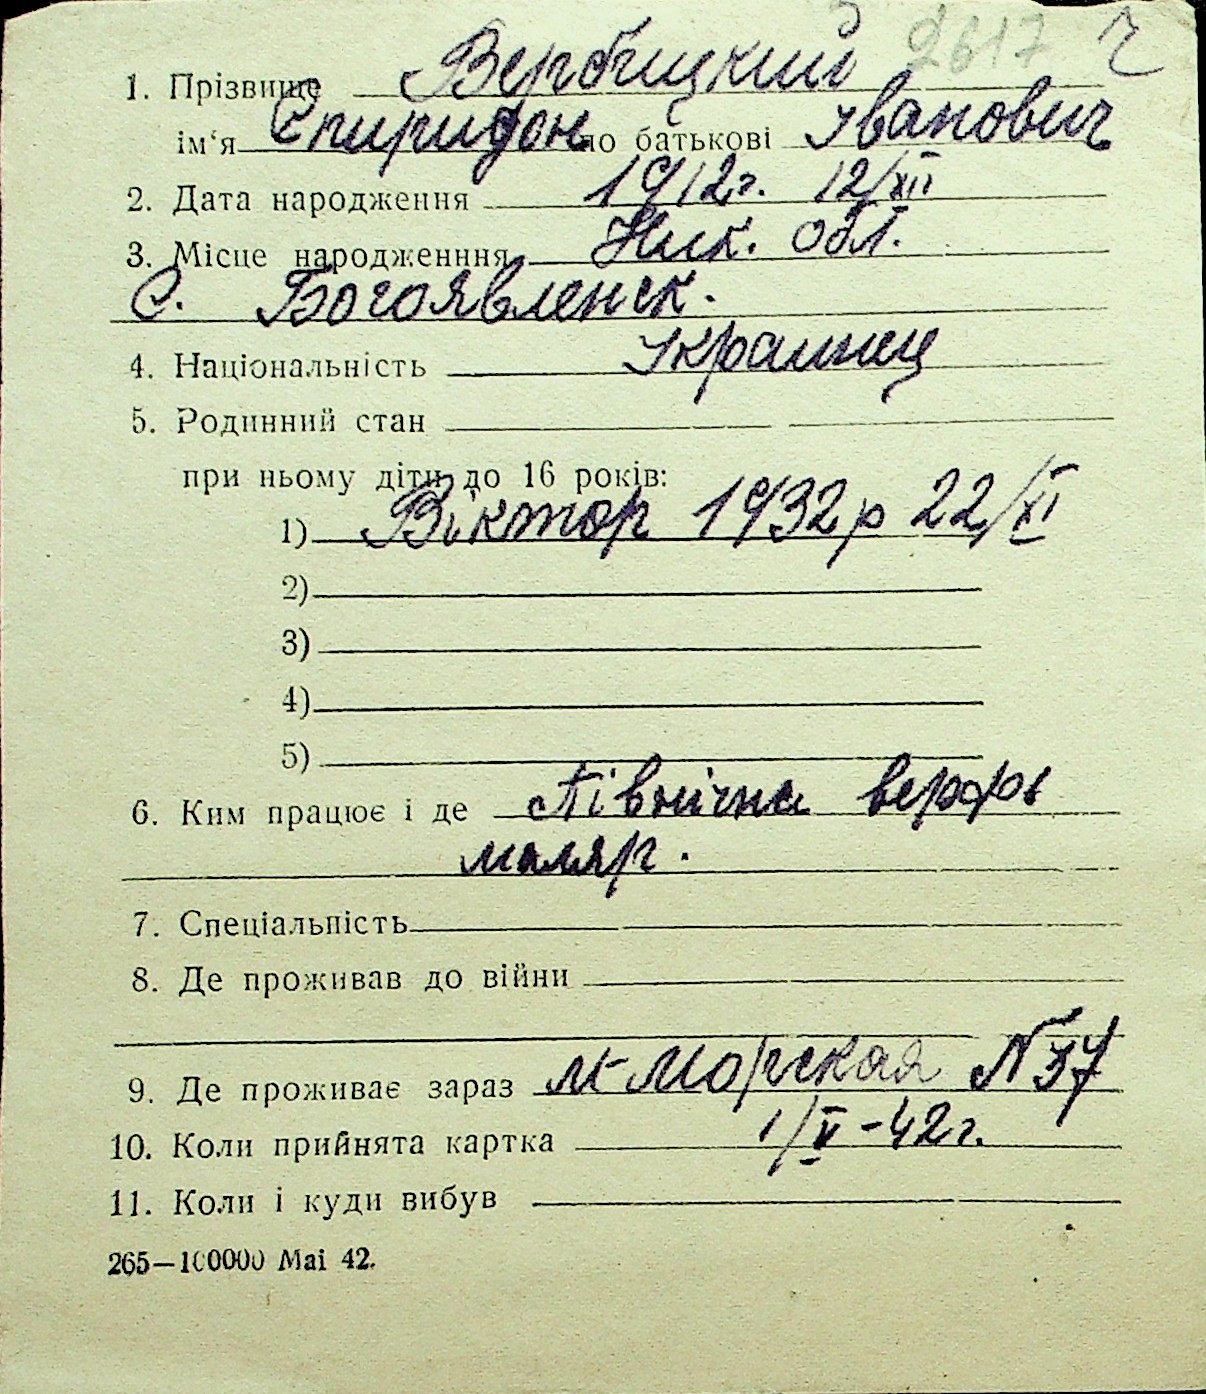 2617 Ч
1. Прізвище Вербицкий
ім'я Спиридон по батькові Іванович
2. Дата народження 1912г. 12/XII
3. Місце народженння Ник. обл.
С. Богоявленск.
4. Національність Украинец
5. Родинний стан
при ньому діти до 16 років:
1) Віктор 1932р 22/XI
2)
3)
4)
5)
6. Ким працює і де Північна верфь
маляр.
7. Спеціальпість
8. Де проживав до війни
9. Де проживає зараз М-Морская N 37
10. Коли прийнята картка 1/V-42г.
11. Коли і куди вибув
265—100000 Mai 42.